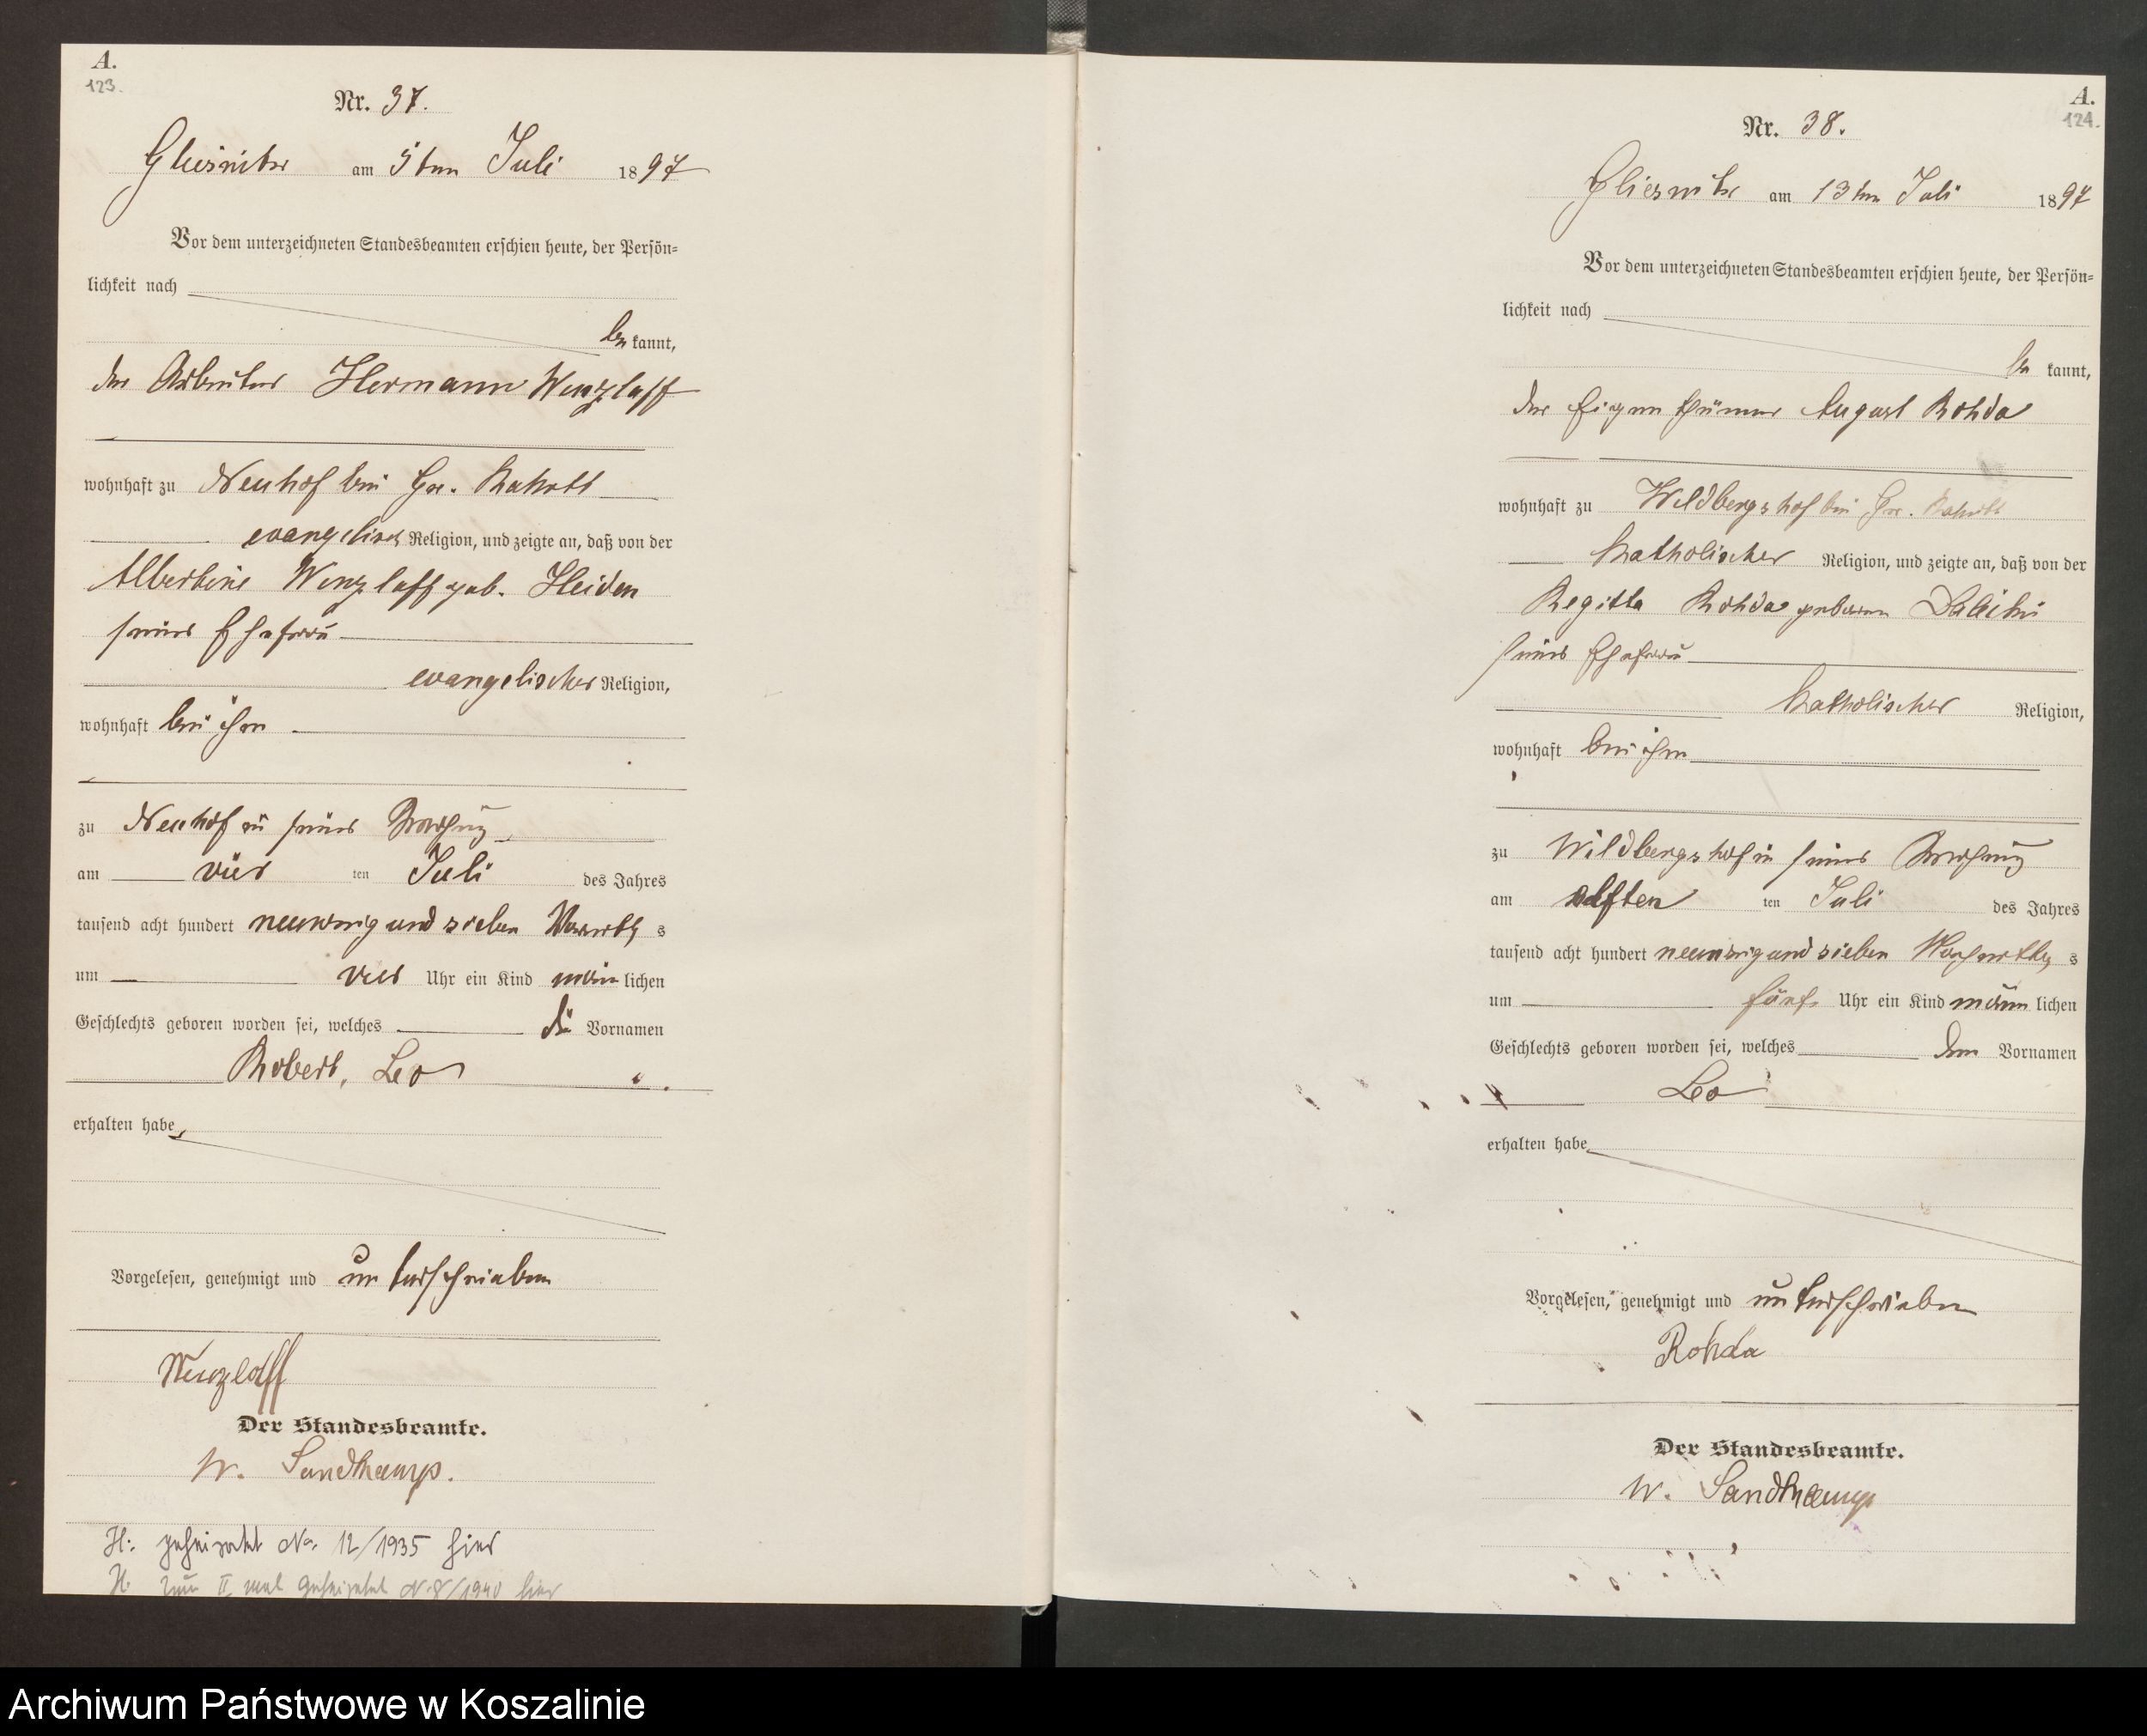 A.
123.
Nr. 37.
Gliesnitz am 5ten Juli 1897
Vor dem unterzeichneten Standesbeamten erschien heute, der Persön-
lichkeit nach
be kannt,
der Arbeiter Hermann Wenzlaff
wohnhaft zu Neuhof bei Gr.
evangelisch Religion, und zeigte an, daß von der
Albertine Wenzlaff geb. Heiden
seiner Ehefrau
evangelischer Religion,
wohnhaft bei ihm
zu Neuhof in seiner Wohnung
am vier ten Juli des Jahres
tausend acht hundert neunzig und sieben Vormittag s
um vier Uhr ein Kind män lichen
Geschlechts geboren worden sei, welches die Vornamen
Robert, Leo
erhalten habe
Vorgelesen, genehmigt und unterschrieben
Wenzlaff
Der Standesbeamte.
W. Sandkamp.
H: geheiratet No. 12/1935 hier
H. zum II mal geheiratet N. 8/1940 hier
A.
124.
Nr. 38.
Gliesnitz am 13ten Juli 1897
Vor dem unterzeichneten Standesbeamten erschien heute, der Persön-
lichkeit nach
be kannt,
der Eigenthümer August Rohda
wohnhaft zu Wildbergshof bei Gr.
katholischer Religion, und zeigte an, daß von der
Regitta Rohda geboren
seiner Ehefrau
katholischer Religion,
wohnhaft bei ihm
zu Wildbergshof in seiner Wohnung
am elften ten Juli des Jahres
tausend acht hundert neunzig und sieben Nachmittag s
um fünf Uhr ein Kind männ lichen
Geschlechts geboren worden sei, welches den Vornamen
Leo
erhalten habe
Vorgelesen, genehmigt und unterschrieben
Rohda
Der Standesbeamte.
W. Sandkamp
Archiwum Państwowe w Koszalinie